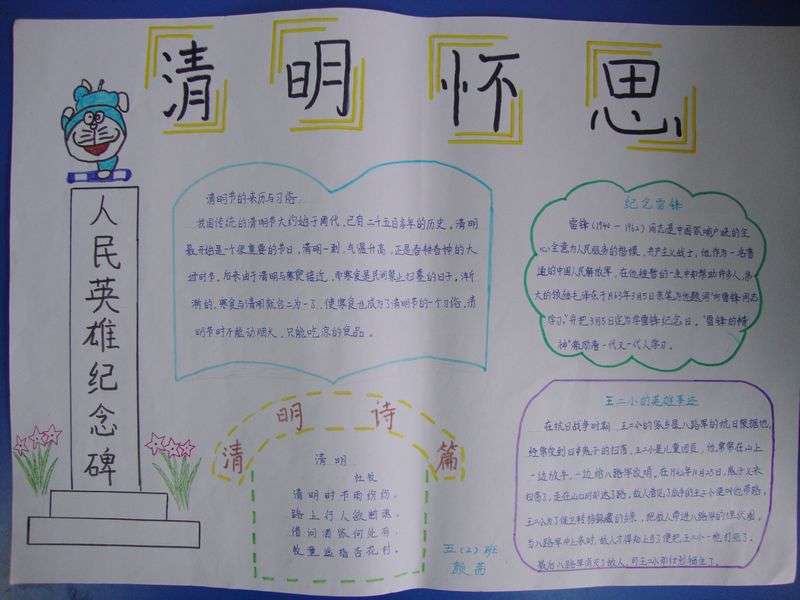 清明怀思
人民英雄纪念碑
清明节的来历与习俗
我国传统的清明节大约始于周代，已有二千五百多年的历史。清明
最开始是一个很重要的节日，清明一到，气温升高，正是春耕春种的大
好时节。后来由于清明与寒食接近，而寒食是民间禁止扫墓的日子。渐
渐的，寒食与清明就合二为一了，使寒食也成为了清明节的一个习俗，清
明节时不能动烟火，只能吃凉的食品。
清明诗篇
清明
杜牧
清明时节雨纷纷，
路上行人欲断魂。
借问酒家何处有，
牧童遥指杏花村。
纪念雷锋
雷锋（1940—1962）同志是中国家喻户晓的全
心全意为人民服务的楷模，共产主义战士；他作为一名普
通的中国人民解放军，在他短暂的一生中却帮助许多人，伟
大的领袖毛泽东于1963年3月5日亲笔为他题词“向雷锋同志
学习。”并把3月5日定为学雷锋纪念日。“雷锋的精
神”激励着一代又一代人学习。
王二小的英雄事迹
在抗日战争时期，王二小的家乡是八路军的抗日根据地，
经常受到日本鬼子的扫荡，王二小是儿童团员，他常常在山上
一边放牛，一边给八路军放哨。
扫荡了，走在山口时迷了路，敌人看见了放牛的王二小是叫他带路，
王二小为了保卫转移躲藏的乡亲，把敌人带进八路军的埋伏圈，
五（2）班
颜茜